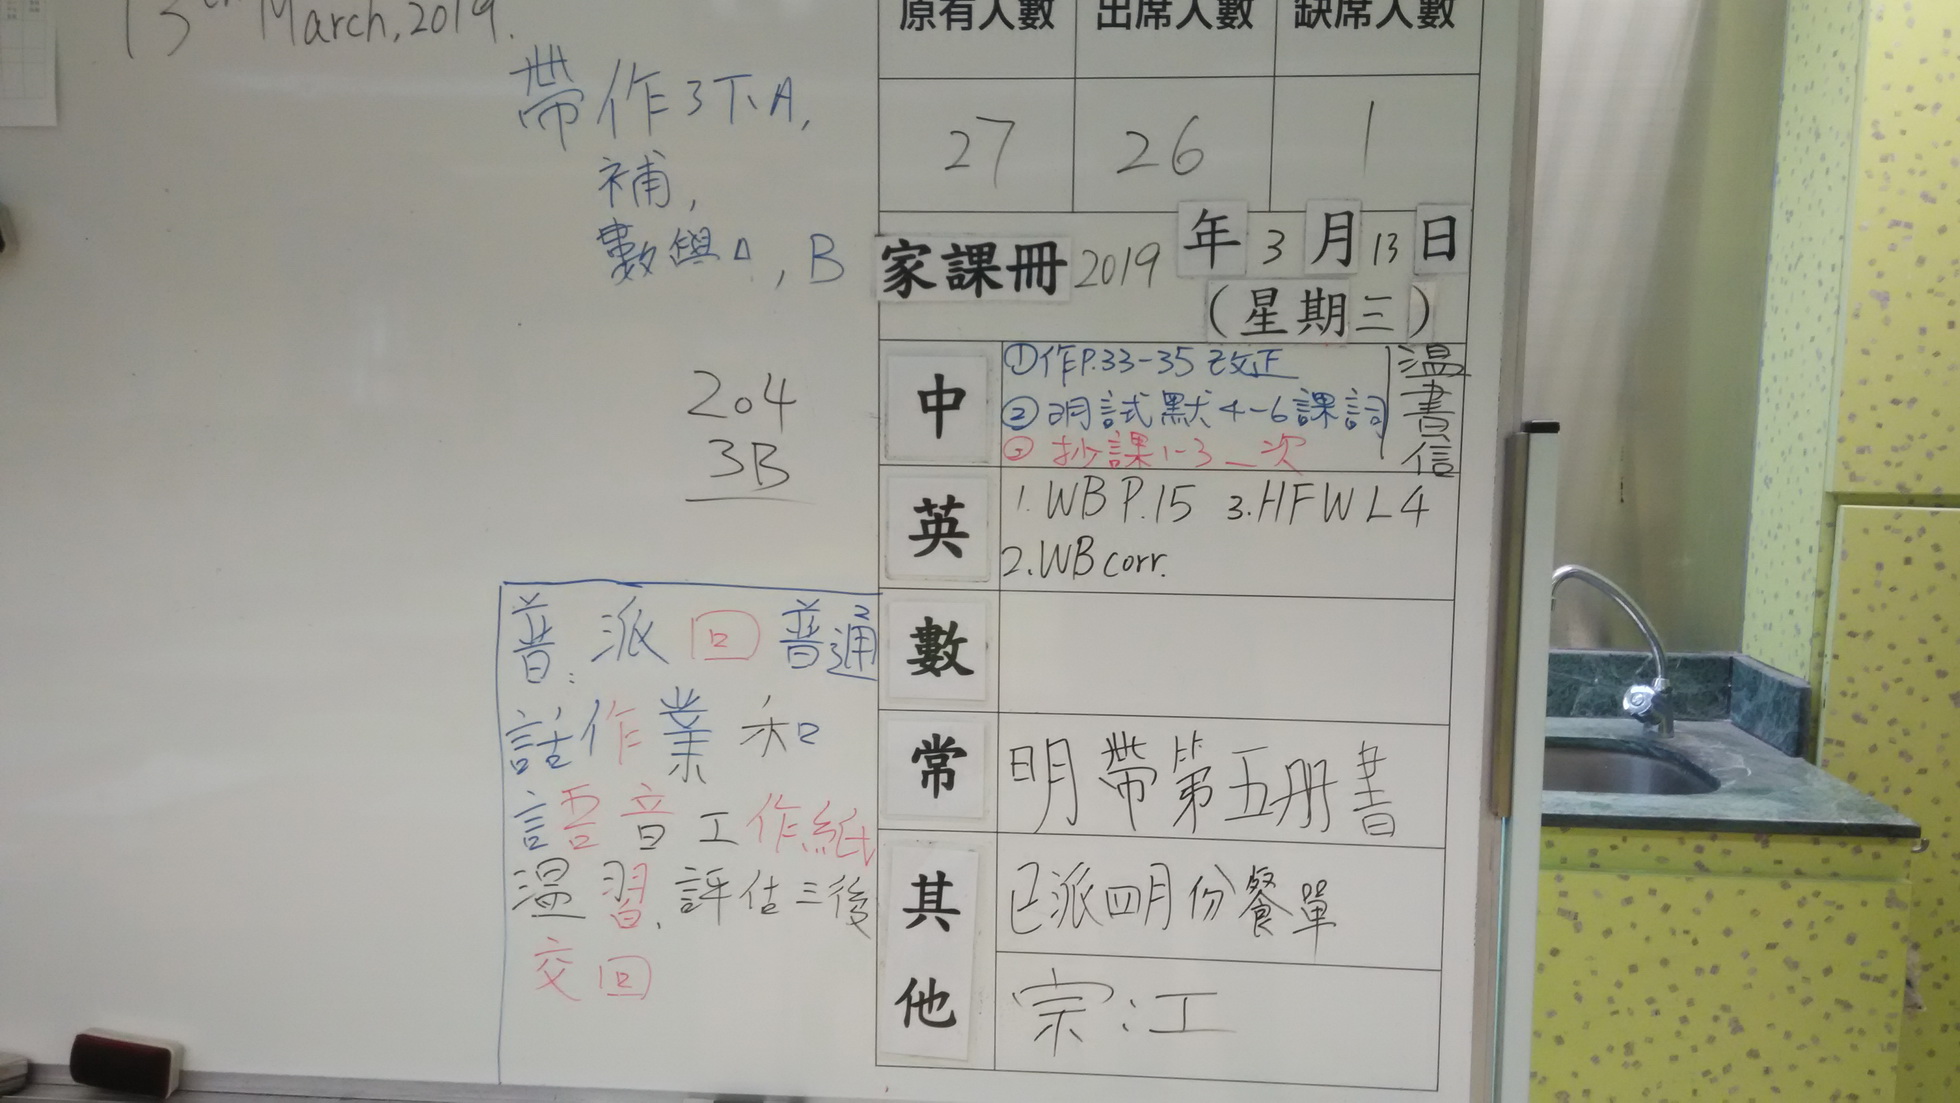 13th March, 2019.
帶作3下A,
補,
數學A, B
204
3B
普: 派回普通
話作業和
語音工作紙
温習, 評估三後
交回
原有人數 出席人數 缺席人數
27 26 1
家課冊 2019年3月13日
(星期三)
中
①作P.33-35改正
②明試默4-6課詞
③抄課1-3一次
温書信
英
1. WB P.15 3. HFW L4
2. WB corr.
數
常
明帶第五册書
其他
已派四月份餐單
宗:工